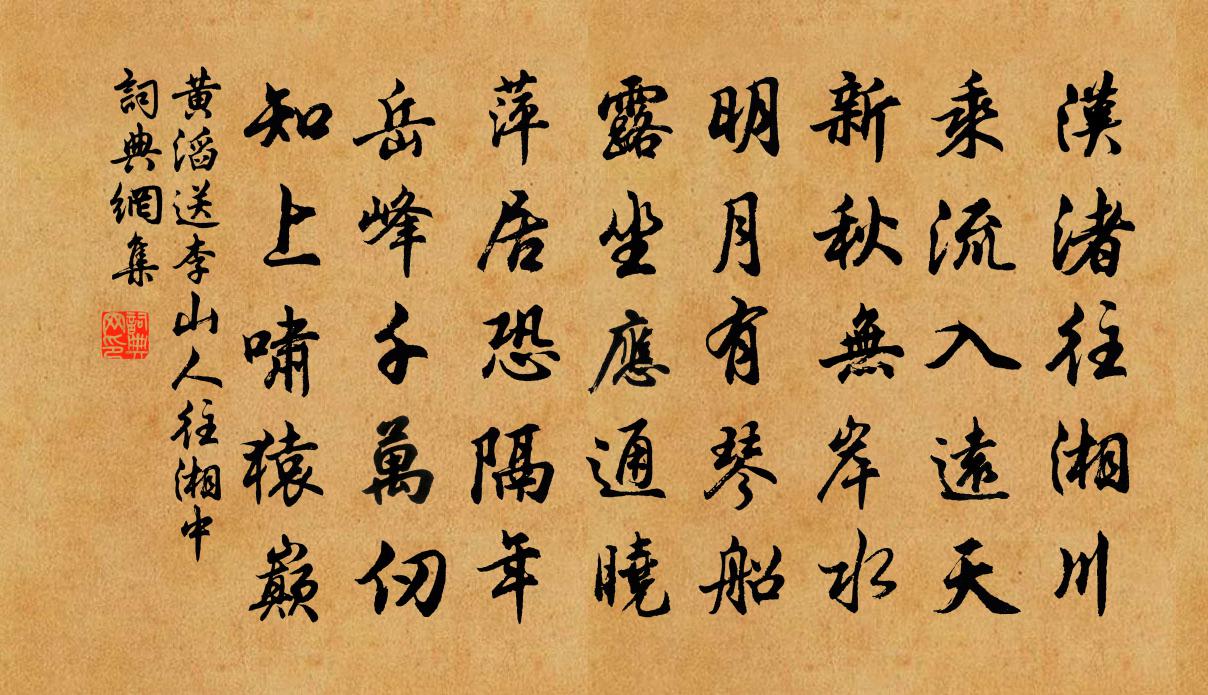 漢渚往湘川
乘流入遠天
新秋無岸水
明月有琴船
露坐應通曉
萍居恐隔年
岳峰千萬仞
知上嘯猿巔
黄滔送李山人往湘中
詞典網集
詞典网印